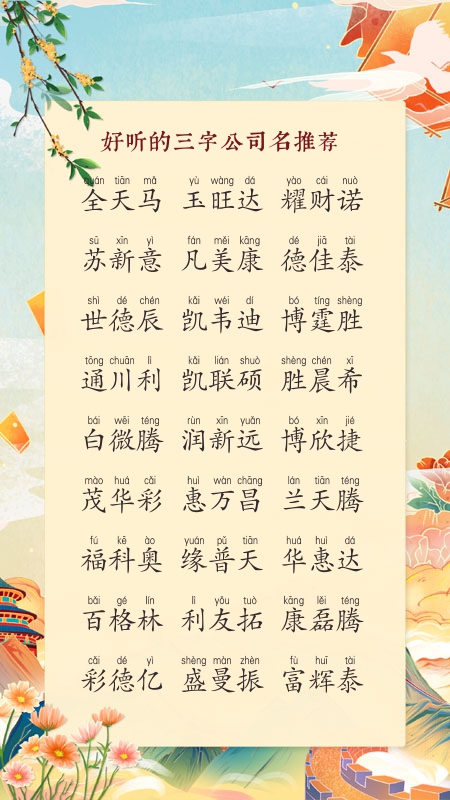 好听的三字公司名推荐
quán tiān mǎ yù wàng dá yào cái nuò
全天马 玉旺达 耀财诺
sū xīn yì fán měi kāng dé jiā tài
苏新意 凡美康 德佳泰
shì dé chén kǎi wéi dí bó tíng shèng
世德辰 凯韦迪 博霆胜
tōng chuān lì kǎi lián shuò shèng chén xī
通川利 凯联硕 胜晨希
bái wēi téng rùn xīn yuǎn bó xīn jié
白微腾 润新远 博欣捷
mào huá cǎi huì wàn chāng lán tiān téng
茂华彩 惠万昌 兰天腾
fú kē ào yuán pǔ tiān huá huì dá
福科奥 缘普天 华惠达
bǎi gé lín lì yǒu tuò kāng lěi téng
百格林 利友拓 康磊腾
cǎi dé yì shèng màn zhèn fù huī tài
彩德亿 盛曼振 富辉泰